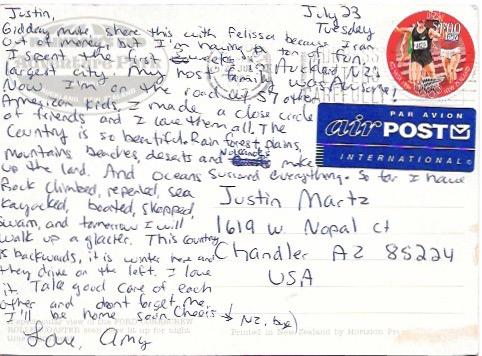 Justin,
July 23
Tuesday
Gidday make share this with Felissa because I ran
out of money, but I'm having a ton of fun.
I spent the first 2 weeks in Auckland NZ's
largest city my host family was Awesome!
Now I'm on the road w/ 37 other
American kids. I made a close circle
of friends and I love them all. The
Country is so beautiful. Rain forest, plains,
mountains, beaches, deserts and Volcanoes make
up the land. And oceans surround everything. So far I have
Rock climbed, repeled, sea
kayacked, boated, skipped,
swam, and tomorrow I will
walk up a glacier. This country
is backwards, it is winter here and
they drive on the left. I love
it. Take good care of each
other and don't forget me,
I'll be home soon Cheers
(NZ, bye)
Love, Amy
Justin Martz
1619 W Nopal Ct
Chandler AZ 85224
USA
PAR AVION
air POST
INTERNATIONAL
Printed in New Zealand by Horizon